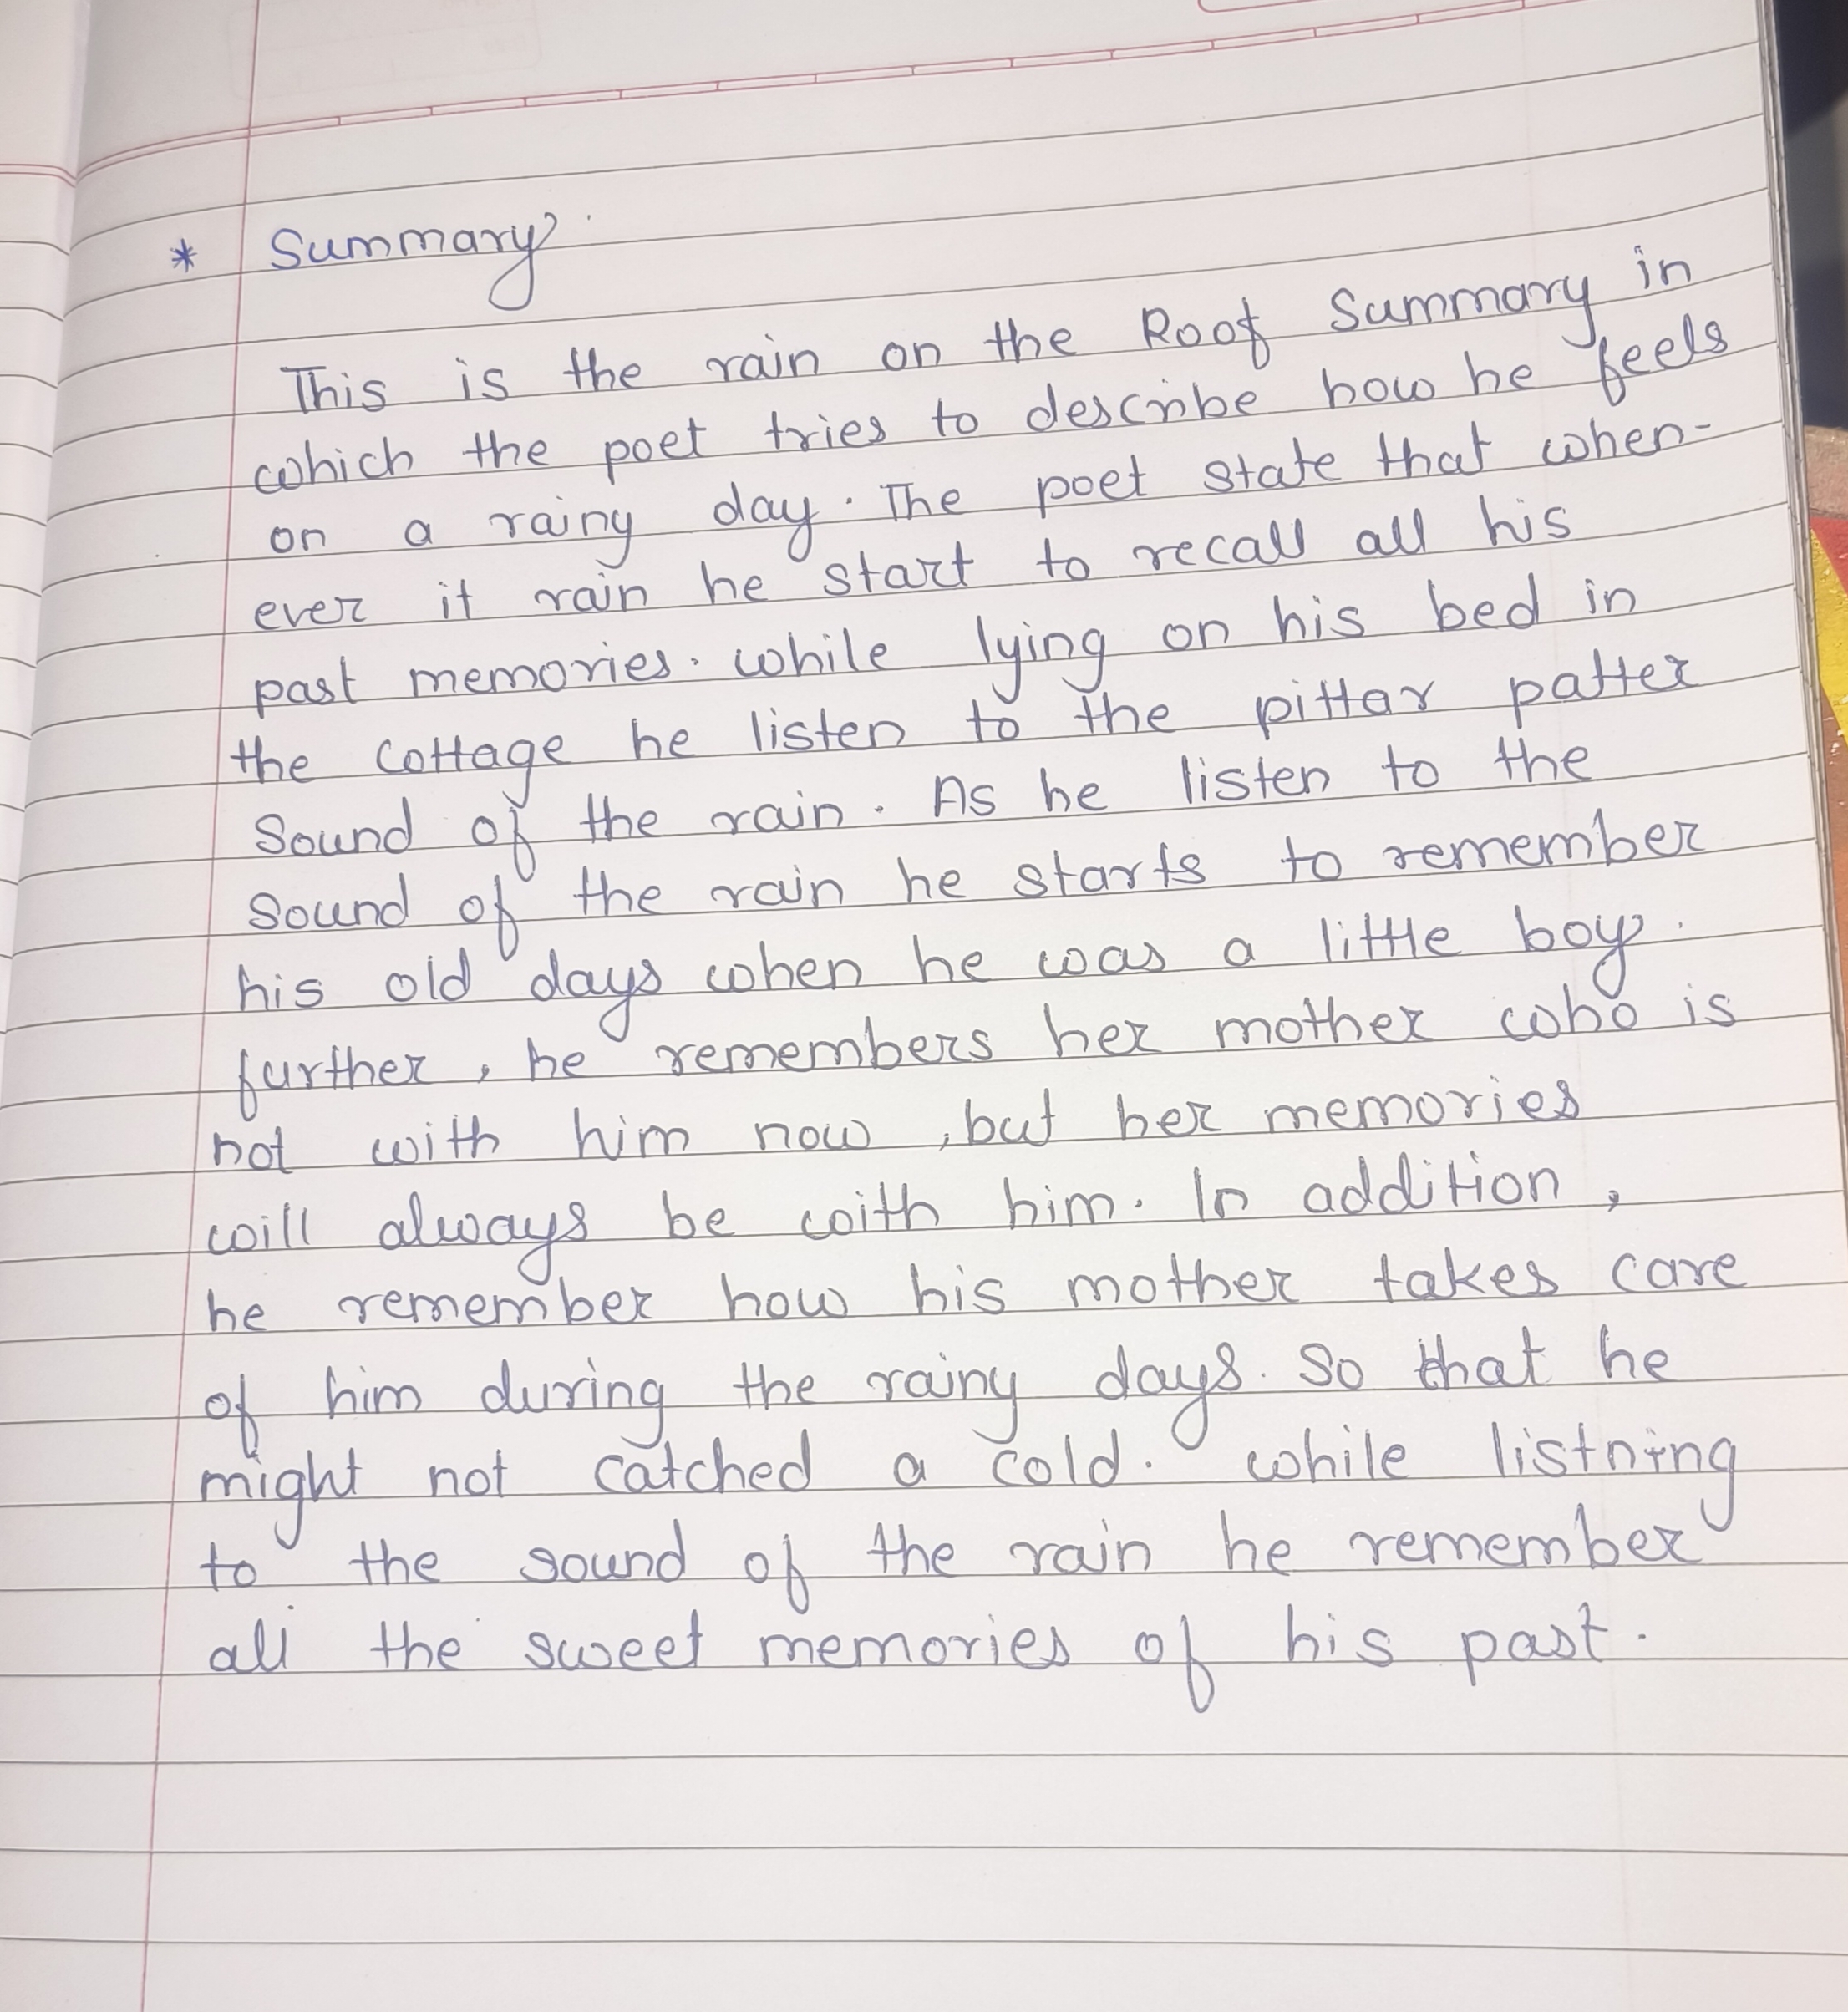 * Summary
This is the rain on the Roof Summary in
which the poet tries to describe how he feels
on a rainy day. The poet state that when-
ever it rain he start to recall all his
past memories. while lying on his bed in
the cottage he listen to the pittar patter
sound of the rain. As he listen to the
sound of the rain he starts to remember
his old days when he was a little boy.
further, he remembers her mother who is
not with him now, but her memories
will always be with him. In addition,
he remember how his mother takes care
of him during the rainy days. So that he
might not catched a cold. while listning
to the sound of the rain he remember
all the sweet memories of his past.